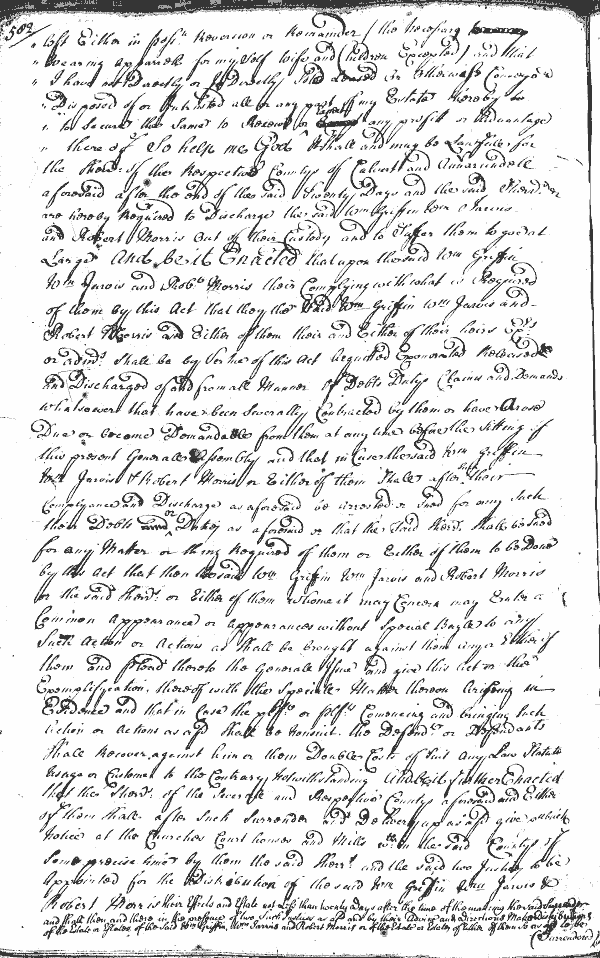 502
" left Either in possn. Reversion or Remainder (the necessary
" wearing apparell for my Self Wife and Children Excepted) and that
" I have not Directly or Indirectly Sold Leased or Otherwise Conveyed
" Disposed of or Intrusted all or any part of my Estate thereby to
" to Secure the same to Receive or Expect any profit or advantage
" there of So help me God It shall and may be Lawfull for
the Sherr: of the Respective Countys of Calvert and Annarundell
aforesaid after the end of the said Twenty Days and the said Sherr:
are hereby Required to Discharge the said Wm Griffin Wm Jarvis
and Robert Morris Out of their Custody and to Suffer them to goe at
Large And be it Enacted that upon the said Wm Griffin
Wm Jarvis and Robt. Morris their Complying with what is Required
of them by this Act that they the said Wm Griffin Wm Jarvis and
Robert Morris and Either of them their and Either of their heirs Exrs.
or admrs. shall be by Vertue of this Act Acquitted Exonerated Released
and Discharged of and from all Manner of Debts Dutys Claimes and Demands
whatsoever that have been Severally Contracted by them or have Arose
Due or become Demandable from them at any time before the Sitting of
this present Generall Assembly and that in Case the said Wm Griffin
Wm Jarvis & Robert Morris or Either of them Shall after Such their
Complyance and Discharge as aforesaid be arrested or Sued for any such
their Debts or Dutys as aforesaid or that the said Sherr. Shall be Sued
for any Matter or thing Required of them or Either of them to be Done
by this Act that then the said Wm Griffin Wm Jarvis and Robert Morris
or the said Sherr: or Either of them whome it may Concern may Enter a
Common Appearance or appearances without Special Bayle to any
Such Action or Actions as shall be brought against them or Either of
them and plead thereto the Generall Issue and give this Act or the
Exemplification thereof with the Speciall Matter thereon Arising in
Evidence and that in Case the plf. or plfs. Comencing and bringing Such
Action or Actions as afd Shall be nonsuit the Defendt. or Defendants
Shall Recover against him or them Double Costs of Suit Any Law Statute
Usage or Custome to the Contrary Notwithstanding And be it further Enacted
that the Sherr. of the Severall and Respective Countys aforesaid and Either
of them shall after Such Surrender and Delivery up as afd. give publick
Notice at the Churches Court houses and Mills with in the said Countys of
Some precise time by them the said Sherr. and the said two Justices to be
appointed for the Distribution of the said Wm Griffin Wm Jarvis &
Robert Morris their Effects and Estate not Less than twenty days after the time of the making the said Surrender
and shall then and there in the presence of two Such Justices as afd. and by their advice and directions Make distribution
of the Estate or Estates of the said Wm Griffin, Wm Jarvis and Robert Morris or of the Estate or Estates of Either of them So as afd to be
(Surrendered